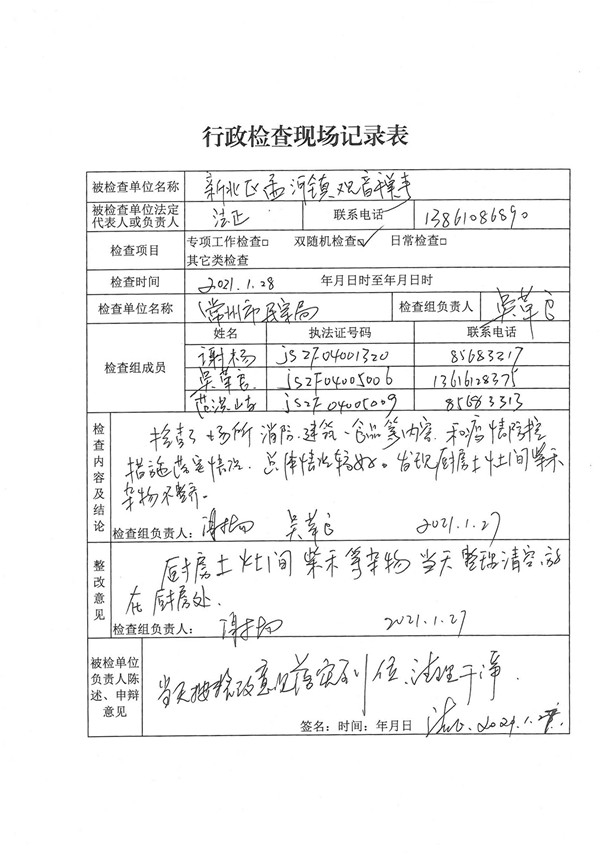 行政检查现场记录表
被检查单位名称 新北区孟河镇观音禅寺
被检查单位法定代表人或负责人 法正 联系电话 13861086890
检查项目 专项工作检查□ 双随机检查☑ 日常检查□
其它类检查
检查时间 2021.1.28 年月日时至年月日时
检查单位名称 常州市民宗局 检查组负责人 吴革良
检查组成员 姓名 执法证号码 联系电话
谢杨 js2F04001320 85683217
吴革良 js2F04005006 13616128375
js2F04005009 85683313
检查内容及结论
检查了场所消防、建筑、食品等内容和疫情防控
措施落实情况。总体情况较好。发现厨房土灶间柴禾
杂物不整齐。
检查组负责人: 谢杨 吴革良 2021.1.27
整改意见
厨房土灶间柴禾等杂物当天整理清空,放
在厨房处.
检查组负责人: 谢杨 2021.1.27
被检单位负责人陈述、申辩意见
当天按整改意见落实到位,清理干净.
签名:时间:年月日 法正 2021.1.